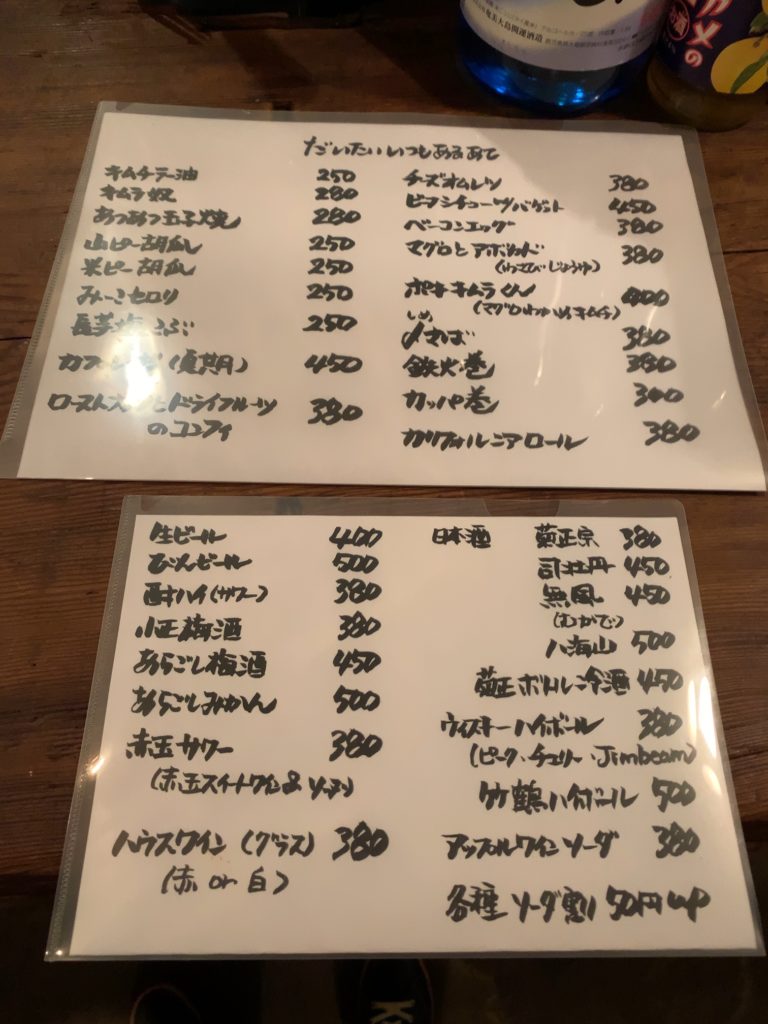 奄美大島開運酒造
だいたいいつもあるあて
キムチラー油 250
キムラ奴 280
あつあつ玉子焼 280
山ピー胡瓜 250
米ピー胡瓜 250
みーこセロリ 250
250
(夏期) 450
ドライフルーツ 380
のコンフィ
チーズオムレツ 380
ビーフシチュー/バゲット 450
ベーコンエッグ 380
マグロとアボカド 380
(わさびじょうゆ)
ポキキムラくん 400
(マグロわかめキムチ)
しめ
〆さば 380
鉄火巻 380
カッパ巻 300
カリフォルニアロール 380
生ビール 400
びんビール 500
酎ハイ(サワー) 380
小正梅酒 380
あらごし梅酒 450
あらごしみかん 500
赤玉サワー 380
(赤玉スイートワイン&ソーダ)
ハウスワイン(グラス) 380
(赤 or 白)
日本酒 菊正宗 380
司牡丹 450
無風 450
(むかで)
八海山 500
菊正ボトル冷酒 450
ウィスキーハイボール 380
(ピーク・チェリー・Jimbeam)
竹鶴ハイボール 500
アップルワインソーダ 380
各種ソーダ割 50円up